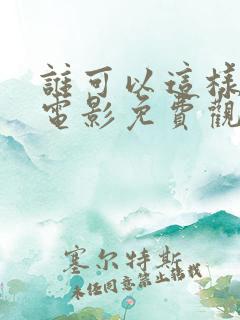 誰可以這樣
電影免費觀
塞尔特斯
未经同意禁止转载